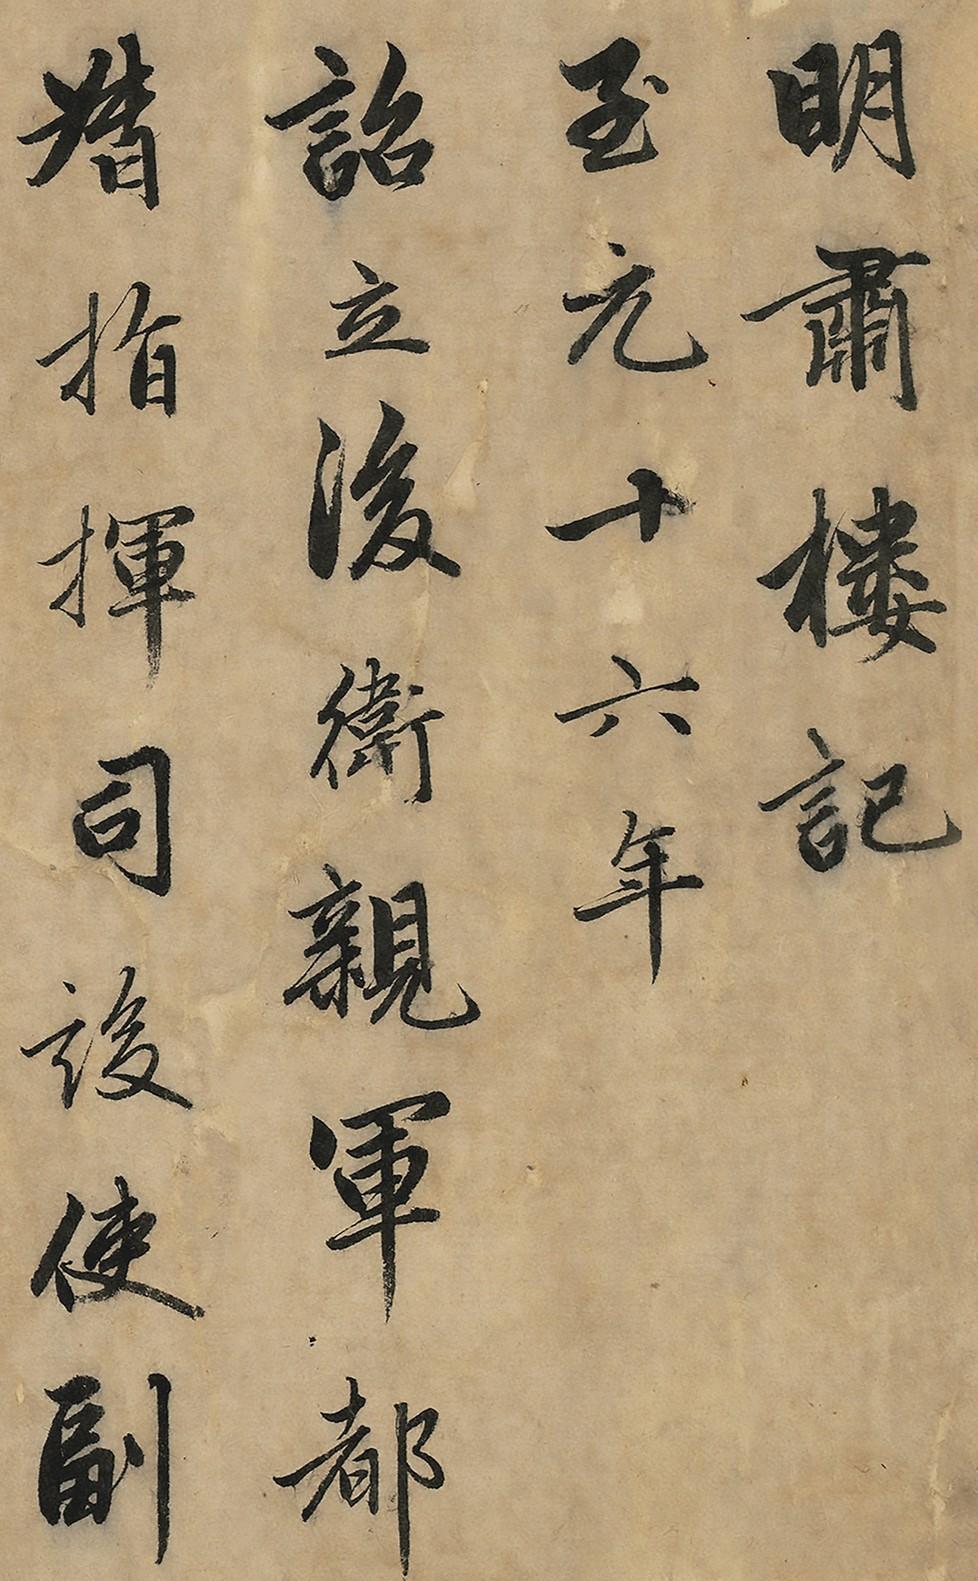 明肅樓記
至元十六年
詔立後衛親軍都
揩指揮司設使副